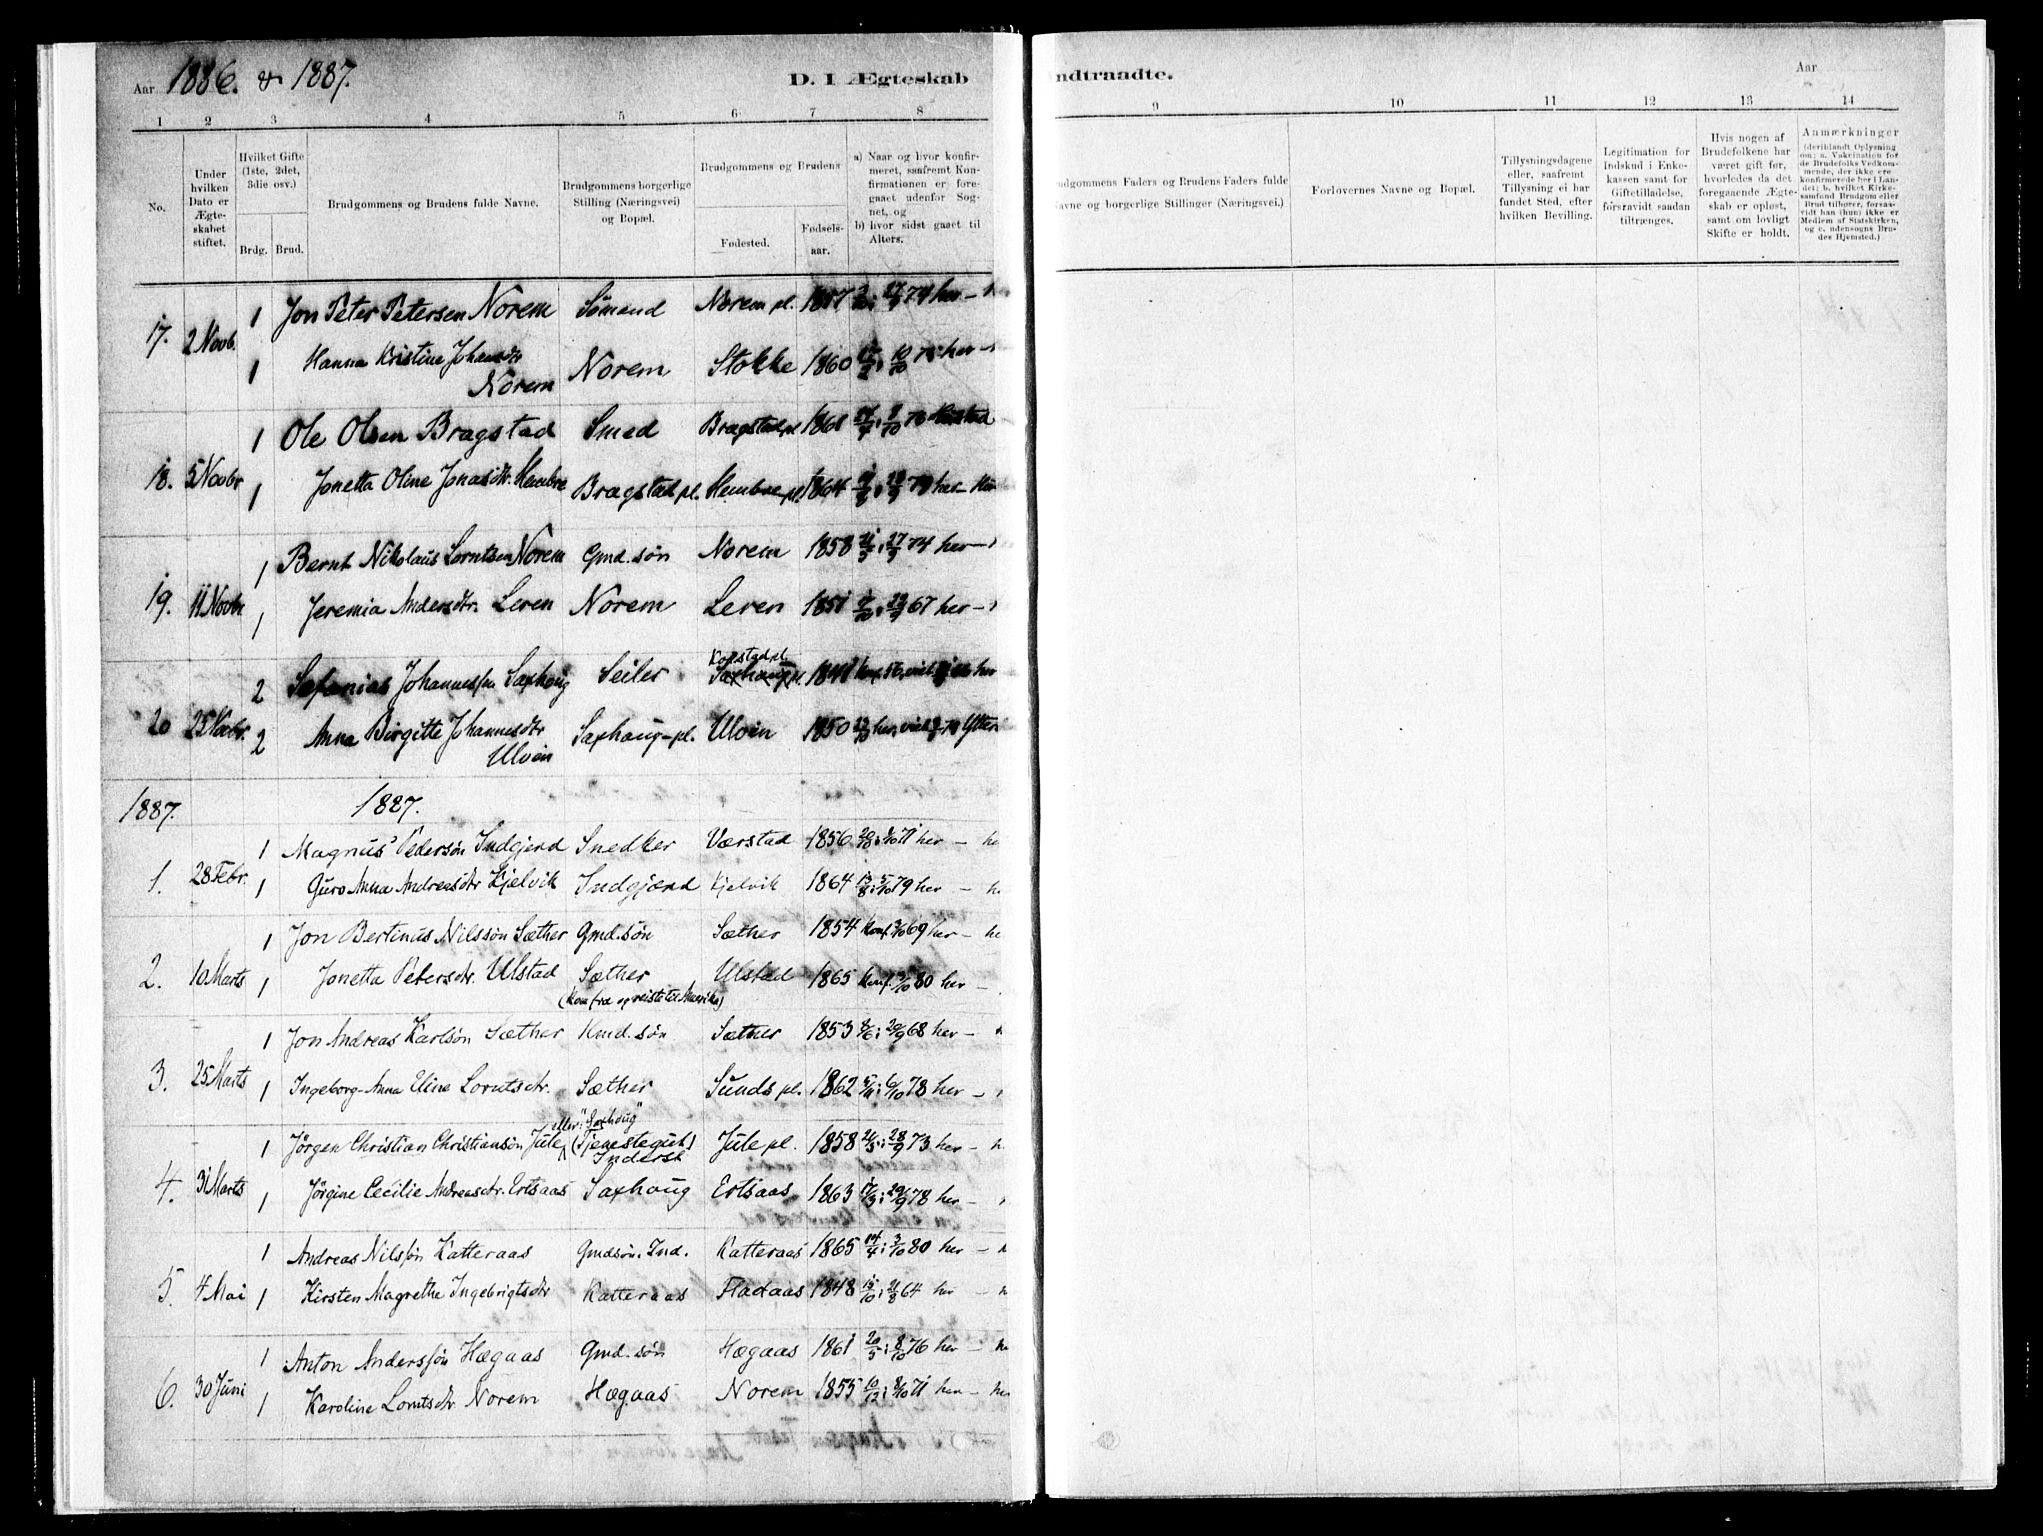 Aar 1886. & 1887.
D. 1 Ægteskab
indtraadte.
Aar
1 2 3 4 5 6 7 8 9 10 11 12 13 14
No.
Under hvilken Dato er Ægteskabet stiftet.
Hvilket Gifte (1ste, 2det, 3die osv.)
Brdg. Brud.
Brudgommens og Brudens fulde Navne.
Brudgommens borgerlige Stilling (Næringsvei) og Bopæl.
Brudgommens og Brudens
Fødested.
Fødselsaar.
a) Naar og hvor konfirmeret, saafremt Konfirmationen er foregaaet udenfor Sognet, og
b) hvor sidst gaaet til Alters.
Brudgommens Faders og Brudens Faders fulde Navne og borgerlige Stillinger (Næringsvei.)
Forlovernes Navne og Bopæl.
Tillysningsdagene eller, saafremt Tillysning ei har fundet Sted, efter hvilken Bevilling.
Legitimation for Indskud i Enkekassen samt for Giftetilladelse, forsravidt saadan tiltrænges.
Hvis nogen af Brudefolkene har været gift før, hvorledes da det foregaaende Ægteskab er opløst, samt om lovligt Skifte er holdt.
Anmærkninger
(deriblandt Oplysning om: a. Vakcination for de Brudefolks Vedkommende, der ikke ere konfirmerede her i Landet; b. hvilket Kirkesamfund Brudgom eller Brud tilhører, forsaavidt han (hun) ikke er Medlem af Statskirken, og c. udensogns Brudes Hjemsted.)
17. 2 Novb. 1 Jon Peter Petersen Norem Sömand Norem pl. 1857 27/9 74 her –
1 Hanna Kristine Johansdtr Norem Norem Stokke 1860 her –
18. 5 Novbr 1 Ole Olsen Bragstad Smed Bragstad pl 1861
1 Jonetta Oline Jonasdtr. Hembre Bragstad pl. Hembre pl. 1864 79 her –
19. 11 Novbr 1 Bernt Nikolaus Lorntsen Norem Gmd. søn Norem 1858 27/9 74 her –
1 Jeremia Andersdtr. Leren Norem Leren 1851 29/9 67 her –
20 25 Novbr. 2 Sefanias Johannessen Saxhoug Seiler Saxhoug pl. 1841 her
2 Anna Birgitte Johannesdtr Ulven Saxhoug-pl. Ulven 1850
1887. 1887.
1. 28 Febr. 1 Magnus Pedersøn Indgjerd Snedker Værstad 1856 71 her –
1 Guro Anna Andreasdtr Kjelvik Indgjærd Kjelvik 1864 13/8 i 5/10 79 her –
2. 10 Marts 1 Jon Bertinus Nilssön Sæther Gmd. sön Sæther 1854 Konf. 69 her –
1 Jonetta Petersdtr. Ulstad Sæther Ulstad 1865 Konf. 80 her –
(Kom fra og reiste til Amerika)
3. 25 Marts 1 Jon Andreas Karlsön Sæther Kmd. sön Sæther 1853 68 her –
1 Ingeborg-Anna Eline Lorntsdtr. Sæther Sunds pl. 1862 6/10 78 her –
eller "Saxhoug"
4. 31 Marts 1 Jörgen Christian Christiansön Jule (Tjenestegut) Inderst Jule pl. 1858 28/9 73 her –
1 Jörgine Cecilie Andreasdtr. Ertsaas Saxhoug Ertsaas 1863 29/9 78 her –
5. 4 Mai 1 Andreas Nilssön Katteraas Gmdsön. Ind. Katteraas 1865 14/4 i 3/10 80 her –
1 Kirsten Magrethe Ingebrigtsdtr Katteraas Fladaas 1848 15/10 i 21/8 64 her –
6. 30 Juni 1 Anton Anderssön Hægaas Gmd. sön Hægaas 1861 20/5 i 8/10 76 her –
1 Karoline Lorntsdtr. Norem Hægaas Norem 1855 10/12 i 8/10 71 her –